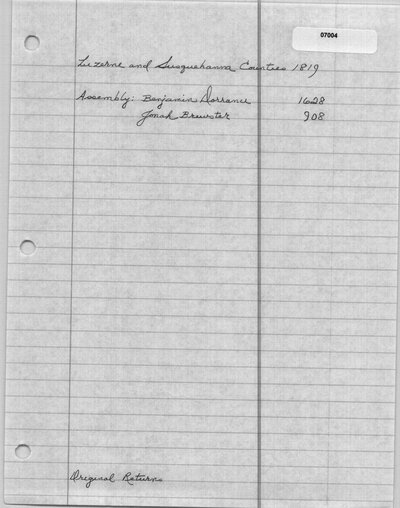 07004
Luzerne and Susquehanna Counties 1819
Assembly: Benjamin Dorrance 1628
Jonah Brewster 908
Original Returns